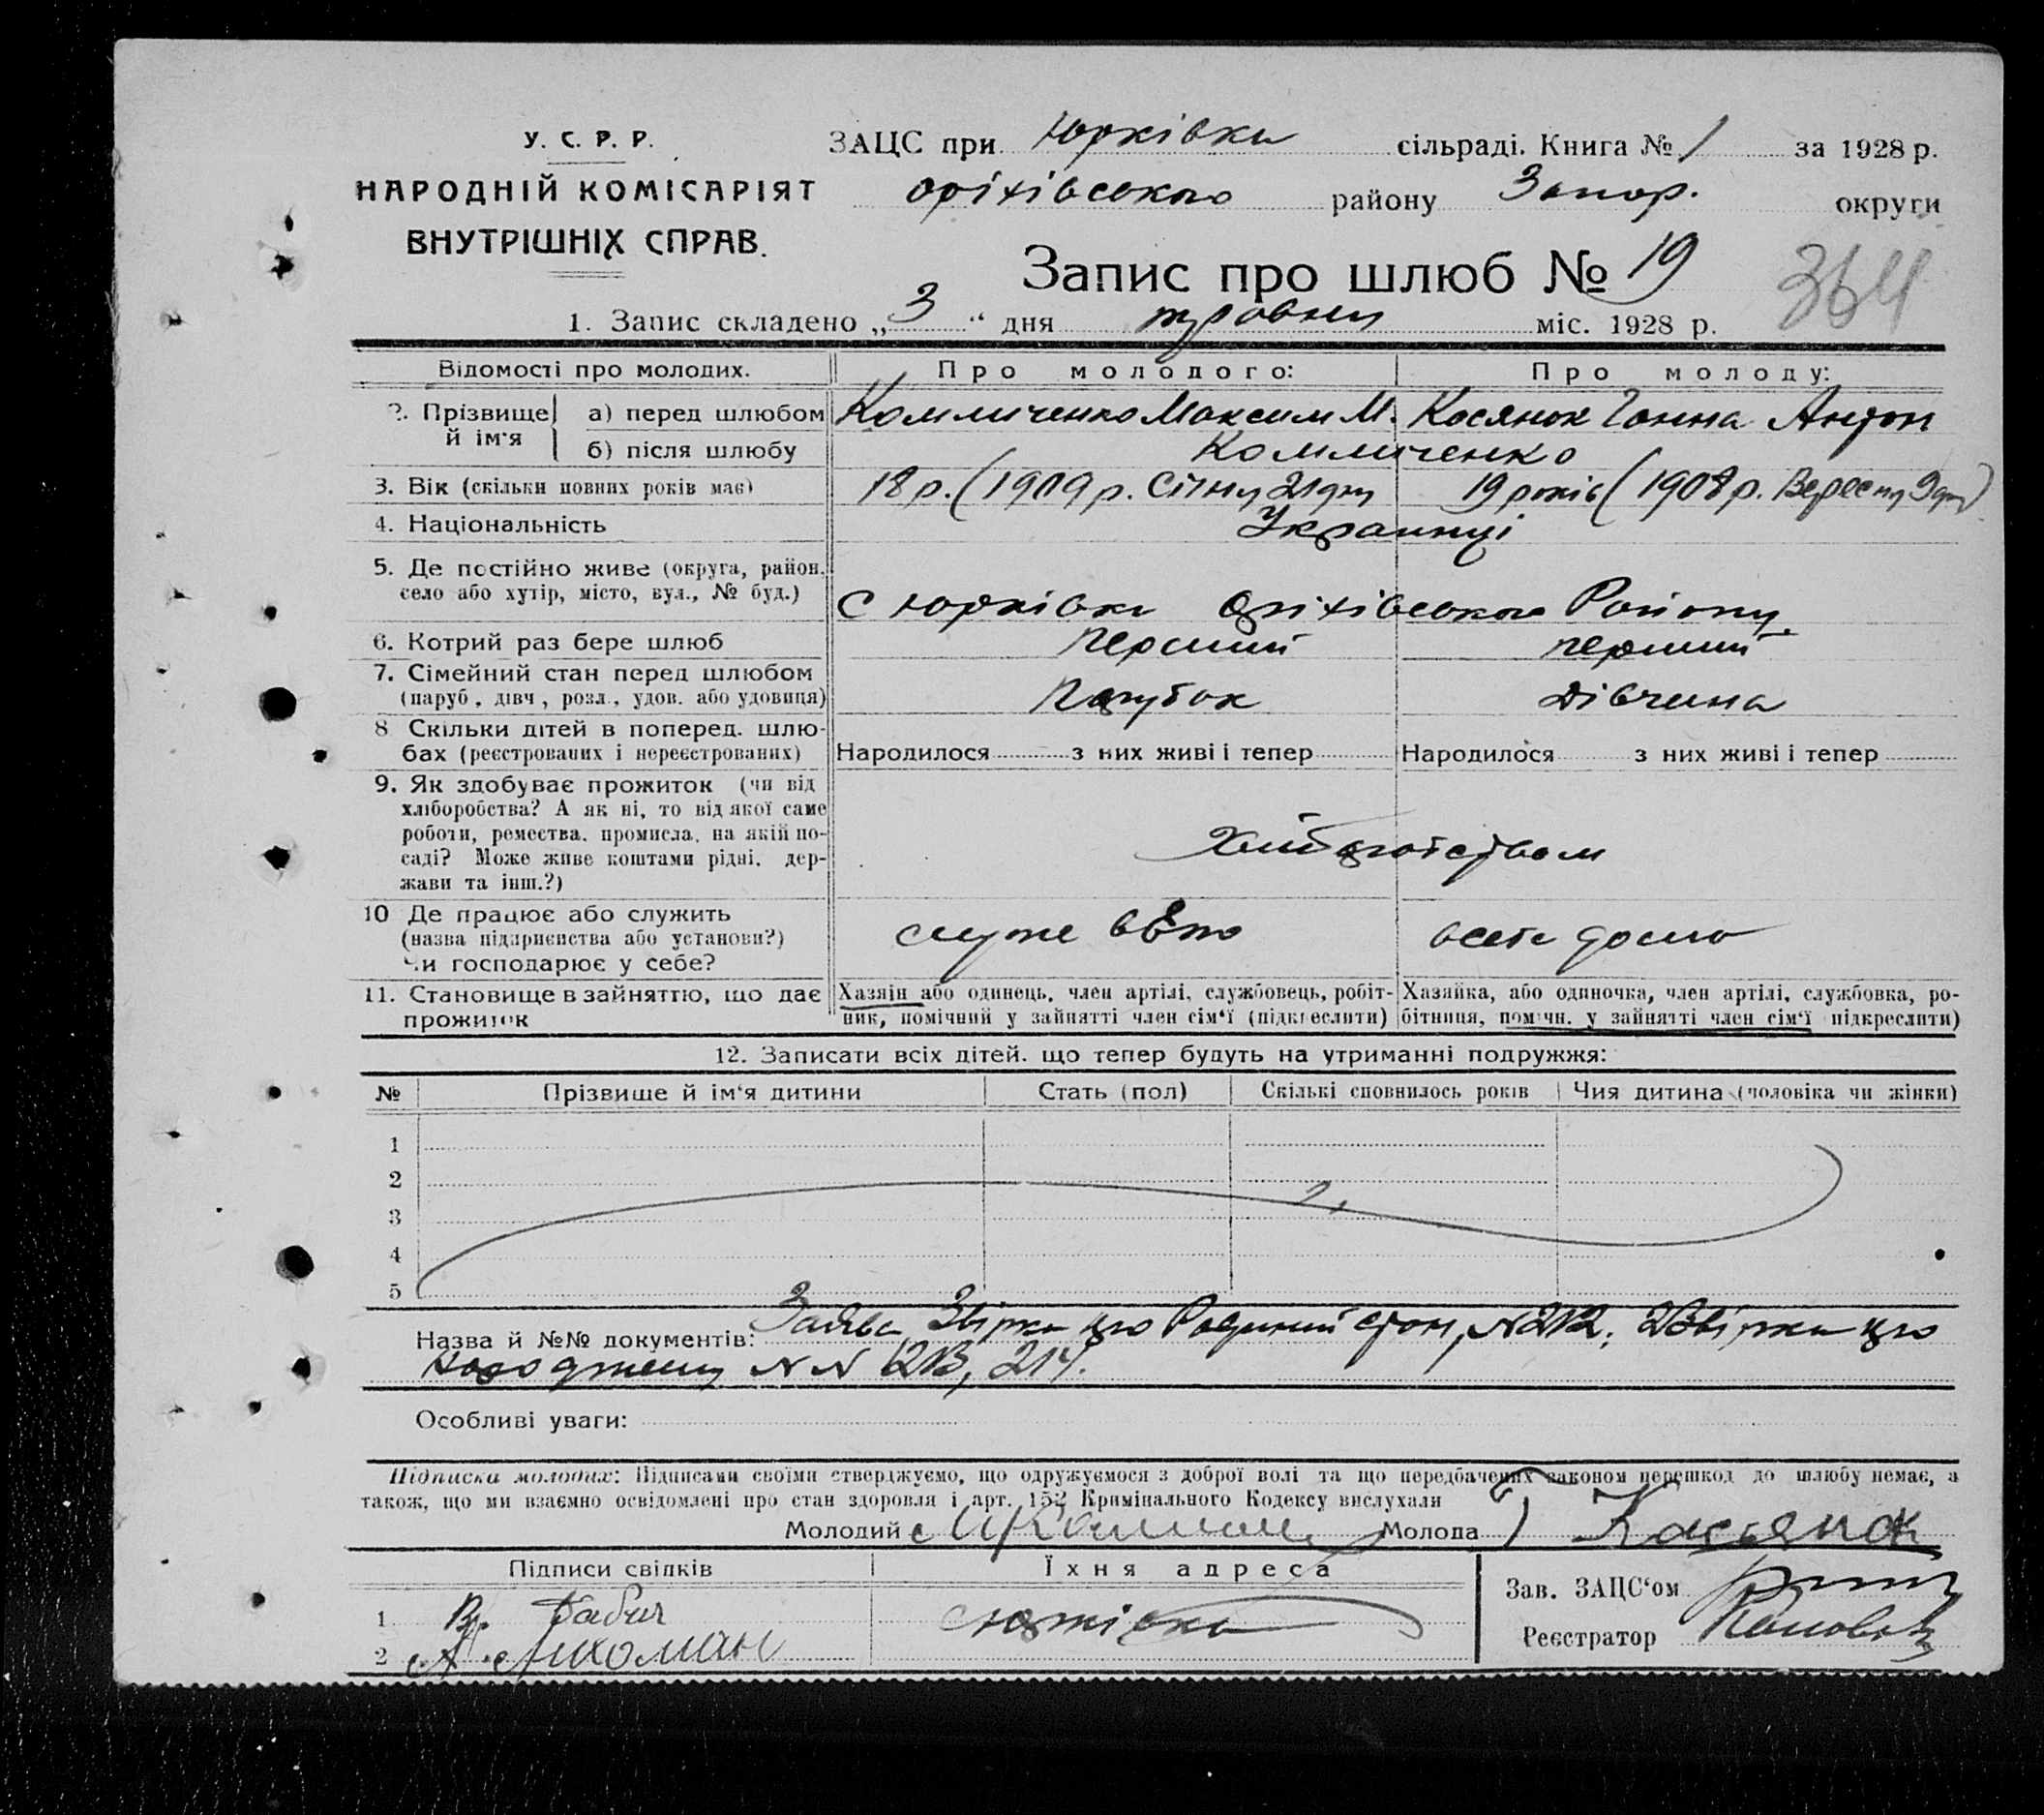 У. С. Р. Р.
НАРОДНІЙ КОМІСАРІЯТ
ВНУТРІШНІХ СПРАВ.
ЗАЦС при Юрківки сільраді. Книга № 1 за 1928 р.
Оріхівського району Запор. округи
Запис про шлюб № 19
364
1. Запис складено „ 3 “ дня травня міс. 1928 р.
Відомості про молодих. Про молодого: Про молоду:
2. Прізвище й ім'я а) перед шлюбом Максим М. Косянок Ганна Антон
б) після шлюбу
3. Вік (скільки повних років має) 18 р. (1909 р. Січня 21 дня 19 років (1908 р. Вересня 9 дня)
4. Національність Українці
5. Де постійно живе (округа, район, село або хутір, місто, вул., № буд.) С Юрківки Оріхівського Району
6. Котрий раз бере шлюб перший перший
7. Сімейний стан перед шлюбом (паруб., дівч., розл., удов. або удовиця) Парубок Дівчина
8 Скільки дітей в поперед. шлюбах (реєстрованих і нереєстрованих) Народилося з них живі і тепер Народилося з них живі і тепер
9. Як здобуває прожиток (чи від
хліборобства? А як ні, то від якої саме
роботи, ремества, промисла, на якій по-
саді? Може живе коштами рідні, дер-
жави та інш.?)
10 Де працює або служить
(назва підприємства або установи?)
Чи господарює у себе?
11. Становище в зайняттю, що дає прожиток
Хазяїн або одинець, член артілі, службовець, робіт-
ник, помічний у зайнятті член сім'ї (підкреслити)
Хазяйка, або одиночка, член артілі, службовка, ро-
бітниця, помічн. у зайнятті член сім'ї підкреслити)
12. Записати всіх дітей, що тепер будуть на утриманні подружжя:
№ Прізвище й ім'я дитини Стать (пол) Скількі сповнилось років Чия дитина (чоловіка чи жінки)
1
2
3
4
5
Назва й №№ документів: Заява, Звірка про Родиний стан, N 212, 2 Звірки про
народження N N 213, 214.
Особливі уваги:
Підписка молодих: Підписами своїми стверджуємо, що одружуємося з доброї волі та що передбачених законом перешкод до шлюбу немає, а
також, що ми взаємно освідомлені про стан здоровля і арт. 152 Кримінального Кодексу вислухали
Молодий Молода Г Касьянок
Підписи свідків Їхня адреса Зав. ЗАЦС'ом
1 Бабич с Юрківка
2 А. Лихоман Реєстратор